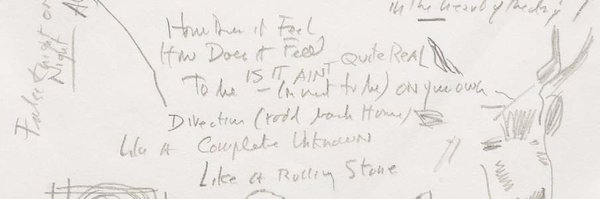 in the heart of the day
False Knight on
Night
How Does it Feel
How Does it Feel QUITE REAL
IS IT AIN'T
To be — (or not to be) ON your own
Direction (road back Home)
Like A Complete Unknown
Like A Rolling Stone